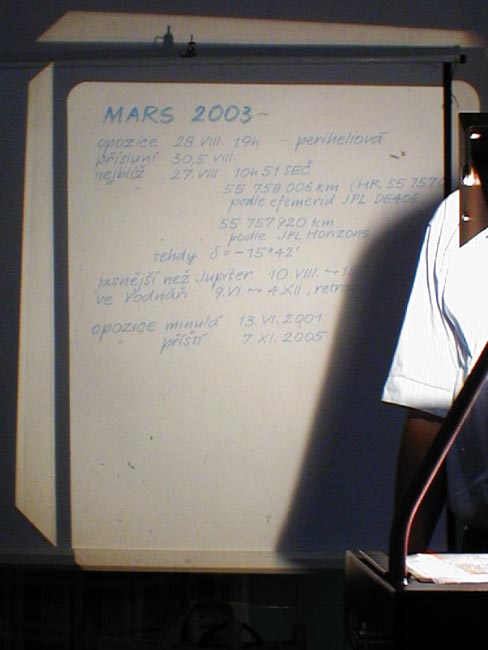 MARS 2003
opozice 28. VIII. 19h - periheliová
přísluní 30,5 VIII.
nejblíž 27 VIII 10h 51 SEČ
" 55 758 006 km (HR 55 7570
podle efemerid JPL DE406
55 757 920 km
podle JPL Horizons
tehdy δ = -15°42'
jasnější než Jupiter 10. VIII. ~
ve Vodnáři 9. VI. ~ 4. XII., retro
opozice minulá 13. VI. 2001
" příští 7. XI. 2005